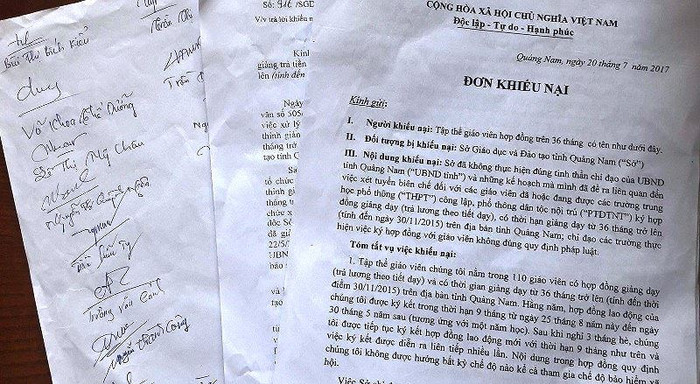 Bùi Thị Bích Kiều
Duy
Võ Khoa Lê Tể Dưỡng
Thị Mỹ Châu
Trương Văn Cảnh
Trần
Số: 916 /SGD
V/v trả lời khiếu n
Kính
giảng trả tiền
lên (tính đến
Ngày
văn số 505
việc xử lý
thỉnh giản
tháng trở
tạo tỉnh C
Sau
tổ chức
thỉnh g
tháng
chức x
đốc Sở
đã gi
22/5/
UBN
báo
CỘNG HÒA XÃ HỘI CHỦ NGHĨA VIỆT NAM
Độc lập - Tự do - Hạnh phúc
Quảng Nam, ngày 20 tháng 7 năm 2017
ĐƠN KHIẾU NẠI
Kính gửi:
I. Người khiếu nại: Tập thể giáo viên hợp đồng trên 36 tháng có tên như dưới đây.
II. Đối tượng bị khiếu nại: Sở Giáo dục và Đào tạo tỉnh Quảng Nam ("Sở")
III. Nội dung khiếu nại: Sở đã không thực hiện đúng tinh thần chỉ đạo của UBND
tỉnh Quảng Nam ("UBND tỉnh") và những kế hoạch mà mình đã đề ra liên quan đến
việc xét tuyển biên chế đối với các giáo viên đã hoặc đang được các trường trung
học phổ thông ("THPT") công lập, phổ thông dân tộc nội trú ("PTDTNT") ký hợp
đồng giảng dạy (trả lương theo tiết dạy), có thời hạn giảng dạy từ 36 tháng trở lên
(tính đến ngày 30/11/2015) trên địa bàn tỉnh Quảng Nam; chỉ đạo các trường thực
hiện việc ký hợp đồng với giáo viên không đúng quy định pháp luật.
Tóm tắt vụ việc khiếu nại:
1. Tập thể giáo viên chúng tôi nằm trong 110 giáo viên có hợp đồng giảng dạy
(trả lương theo tiết dạy) và có thời gian giảng dạy từ 36 tháng trở lên (tính đến thời
điểm 30/11/2015) trên địa bàn tỉnh Quảng Nam. Hàng năm, hợp đồng lao động của
chúng tôi được ký kết trong thời hạn 9 tháng từ ngày 25 tháng 8 năm này đến ngày
30 tháng 5 năm sau (tương ứng với một năm học). Sau khi nghỉ 3 tháng hè, chúng
tôi được tiếp tục ký kết hợp đồng lao động mới với thời hạn 9 tháng như trên và
việc ký kết được diễn ra liên tiếp nhiều lần. Nội dung trong hợp đồng quy định
chúng tôi không được hưởng bất kỳ chế độ nào kể cả tham gia chế độ bảo hiểm xã
hội.
Việc Sở chỉ